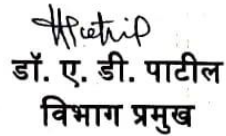 डॉ. ए. डी. पाटील
विभाग प्रमुख